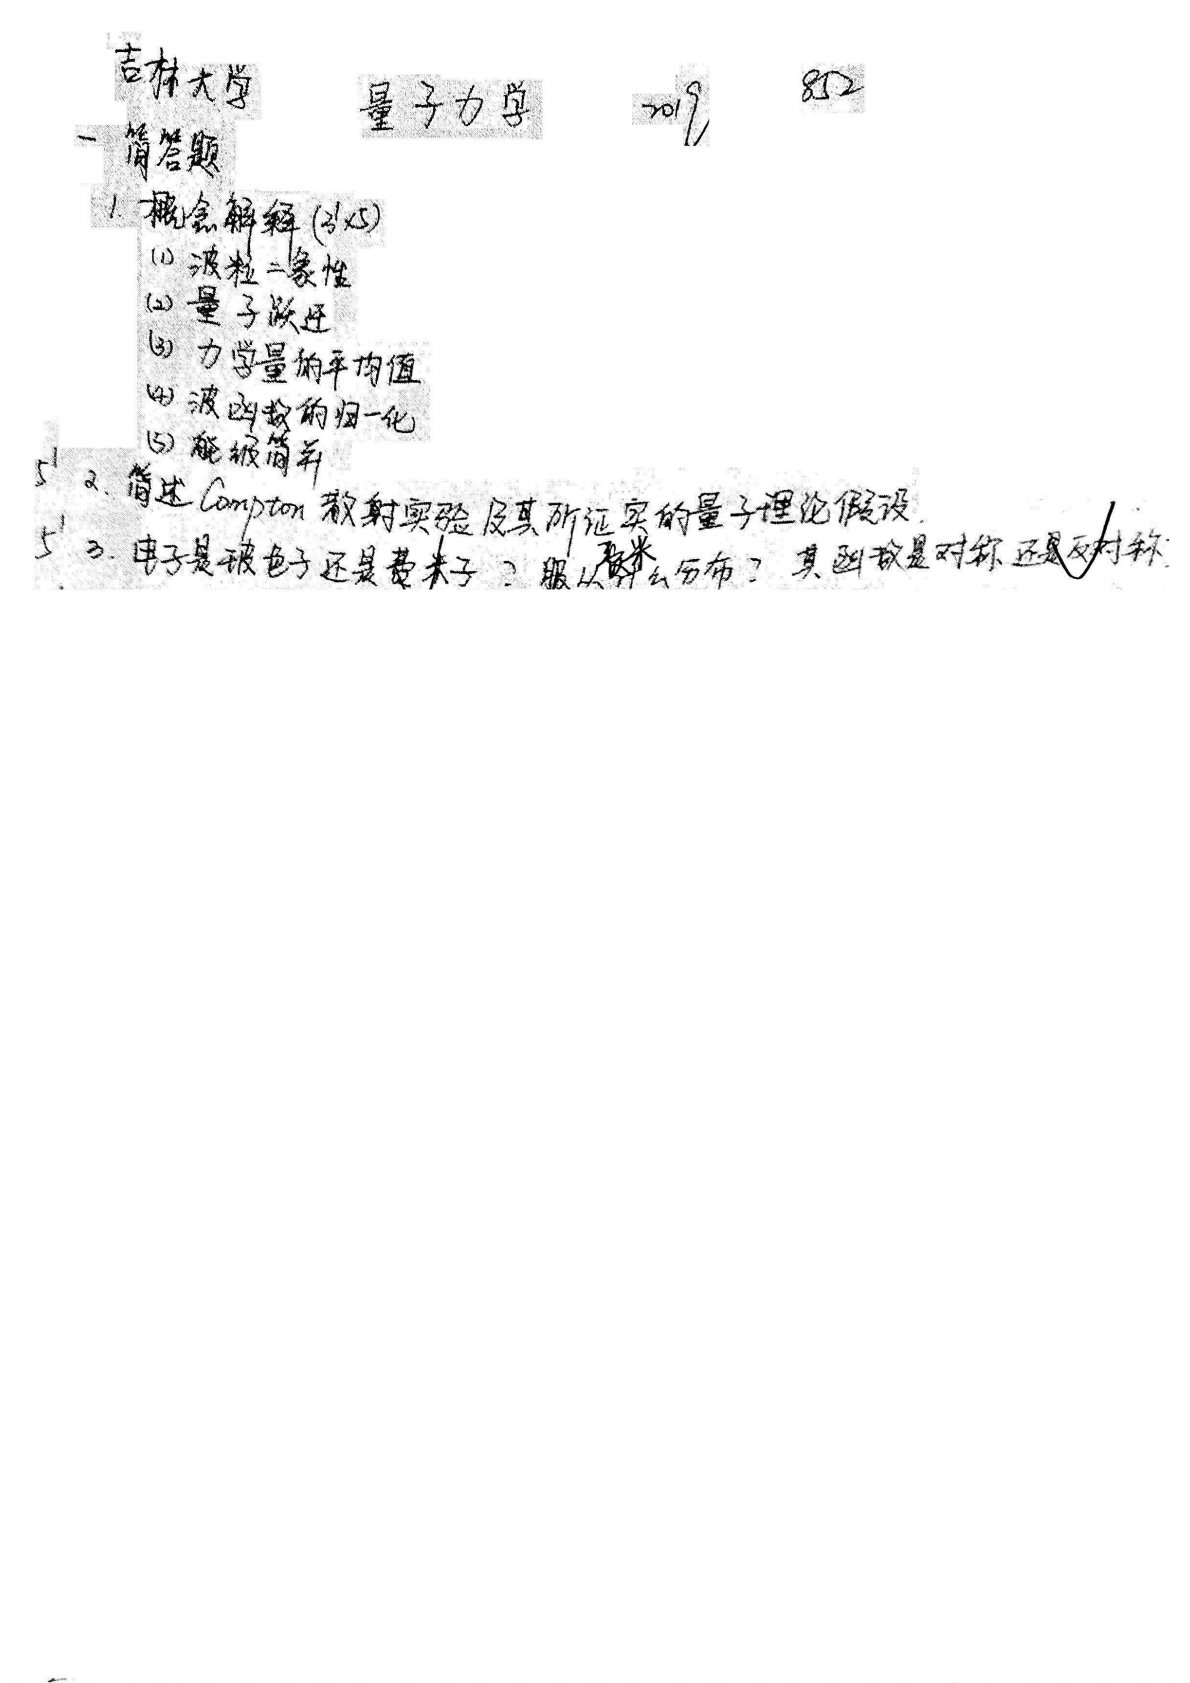 吉林大学 量子力学 2019 852
一 简答题
1. 概念解释(3'×5)
(1) 波粒二象性
(2) 量子跃迁
(3) 力学量的平均值
(4) 波函数的归一化
(5) 能级简并
5' 2. 简述Compton散射实验及其所证实的量子理论假设.
5' 3. 电子是玻色子还是费米子? 服从什么分布? 其函数是对称还是反对称.